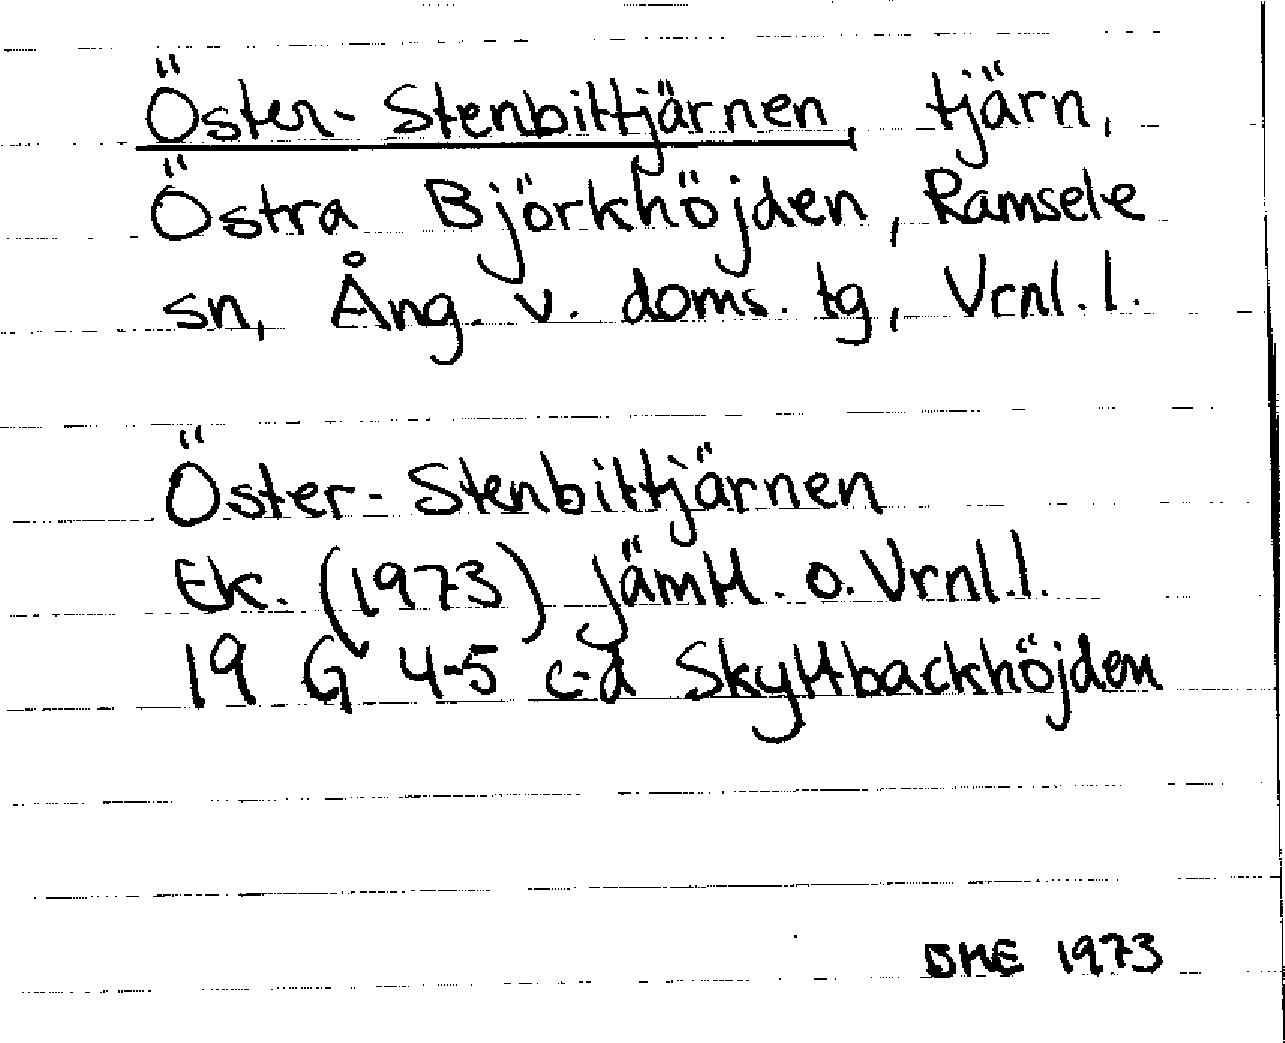 Öster-Stenbittjärnen, tjärn,
Östra Björkhöjden, Ramsele
sn, Ång. v. doms. tg, Vrnl. l.
Öster-Stenbittjärnen
Ek. (1973) Jämtl. o. Vrnl. l.
19 G 4-5 c-d Skyttbackhöjden
BHE 1973